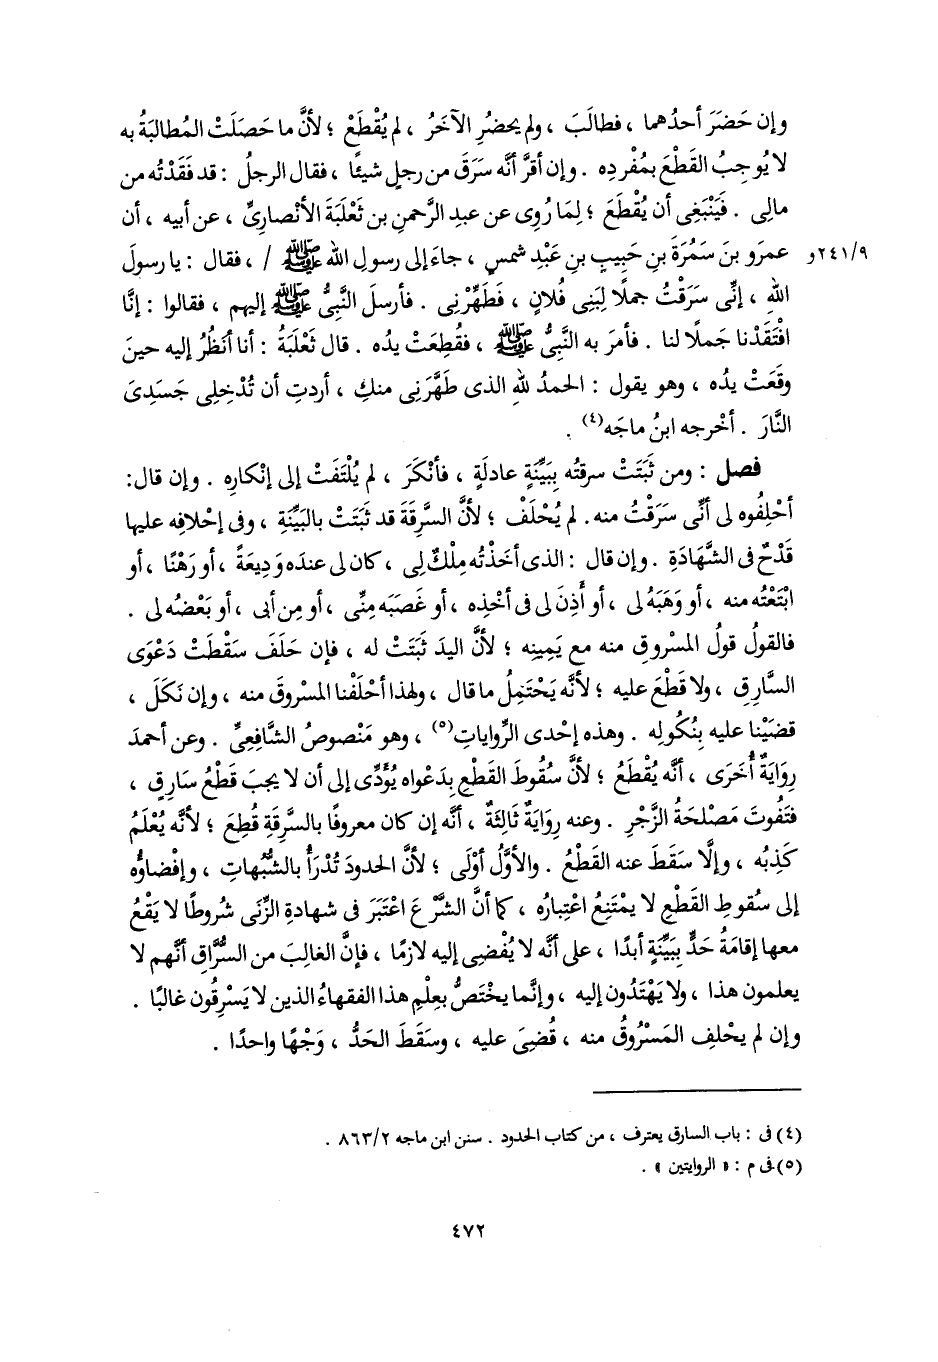 وإن حَضَرَ أحدُهما ، فطالَبَ ، ولم يحضُرِ الآخَرُ ، لم يُقْطَعْ ؛ لأنَّ ما حَصَلَتْ المُطالبَةُ به
لا يُوجِبُ القَطْعَ بمُفْردِه . وإن أقرَّ أنَّه سَرَقَ من رجلٍ شيئًا ، فقال الرجلُ : قد فَقَدْتُه من
مالِى . فيَنْبَغِى أن يُقْطَعَ ؛ لِمَا رُوِى عن عبدِ الرَّحمنِ بن ثَعْلَبَةَ الأنْصارِىِّ ، عن أبيه ، أن
عمرَو بنَ سَمُرَةَ بنِ حَبِيبِ بنِ عَبْدِ شمسٍ ، جاءَ إلى رسولِ الله ﷺ / ، فقال : يا رسولَ ٢٤١/٩و
اللهِ ، إنِّى سَرَقْتُ جملًا لِبَنِى فُلانٍ ، فَطَهِّرْنِى . فأرسلَ النَّبِىُّ ﷺ إليهم ، فقالوا : إنَّا
افْتَقَدْنا جَملًا لنا . فأمرَ به النَّبِىُّ ﷺ ، فقُطِعَتْ يدُه . قال ثَعْلَبَةُ : أنا أنْظُرُ إليه حينَ
وقَعَتْ يدُه ، وهو يقول : الحمدُ للهِ الذى طَهَّرَنِى منكِ ، أردتِ أن تُدْخِلِى جَسَدِىَ
النَّارَ . أخْرجه ابنُ ماجَه(٤) .
فصل : ومن ثَبَتَتْ سرقتُه بِبَيِّنَةٍ عادلَةٍ ، فأنْكَرَ ، لم يُلْتَفَتْ إلى إنْكارِه . وإن قال:
أحْلِفُوه لى أنِّى سَرَقْتُ منه . لم يُحْلَفْ ؛ لأنَّ السَّرِقَةَ قد ثَبَتَتْ بالبَيِّنَةِ ، وفى إحْلافِه عليها
قَدْحٌ فى الشَّهَادَةِ . وإن قال : الذى أخَذْتُه مِلْكٌ لِى ، كان لى عنده وَدِيعَةً ، أو رَهْنًا ، أو
ابْتَعْتُه منه ، أو وَهَبَهُ لى ، أو أَذِنَ لى فى أخْذِه ، أو غَصَبَه مِنِّى ، أو مِن أبى ، أو بَعْضُه لى .
فالقولُ قولُ المسْروقِ منه مع يَمِينِه ؛ لأنَّ اليدَ ثَبَتَتْ له ، فإن حَلَفَ سَقْطَتْ دَعْوَى
السَّارِقِ ، ولا قَطْعَ عليه ؛ لأنَّه يَحْتَمِلُ ما قال ، ولهذا أحْلَفْنا المسْروقَ منه ، وإن نَكَلَ ،
قضَيْنا عليه بِنُكُولِه . وهذه إحْدى الرِّواياتِ(٥) ، وهو مَنْصوصُ الشَّافِعِىِّ . وعن أحمدَ
رِوَايَةٌ أُخْرَى ، أنَّه يُقْطَعُ ؛ لأنَّ سُقُوطَ القَطْعِ بِدَعْواه يُؤَدِّى إلى أن لا يجبَ قَطْعُ سَارِقٍ ،
فتَفُوتَ مَصْلحَةُ الزَّجْرِ . وعنه رِوَايَةٌ ثالِثَةٌ ، أنَّه إن كان معروفًا بالسَّرِقَةِ قُطِعَ ؛ لأنَّه يُعْلَمُ
كَذِبُه ، وإلَّا سَقَطَ عنه القَطْعُ . والأوَّلُ أوْلَى ؛ لأنَّ الحدودَ تُدْرَأُ بالشُّبُهاتِ ، وإفْضاؤُه
إلى سُقوطِ القَطْعِ لا يمْتَنِعُ اعْتِبارُه ، كما أنَّ الشَّرْعَ اعْتَبَرَ فى شهادةِ الزِّنَى شُروطًا لا يَقَعُ
معها إقامَةُ حَدٍّ بِبَيِّنَةٍ أبدًا ، على أنَّه لا يُفْضِى إليه لازمًا ، فإنَّ الغالِبَ من السُّرَّاقِ أنَّهم لا
يعلمون هذا ، ولا يَهْتَدُون إليه ، وإنَّما يخْتَصُّ بعِلْمِ هذا الفقهاءُ الذين لا يَسْرِقُون غالبًا .
وإن لم يحْلِفِ المَسْرُوقُ منه ، قُضِىَ عليه ، وسَقَطَ الحَدُّ ، وَجْهًا واحدًا .
(٤) فى : باب السارق يعترف ، من كتاب الحدود . سنن ابن ماجه ٨٦٣/٢ .
(٥) فى م : « الروايتين » .
٤٧٢